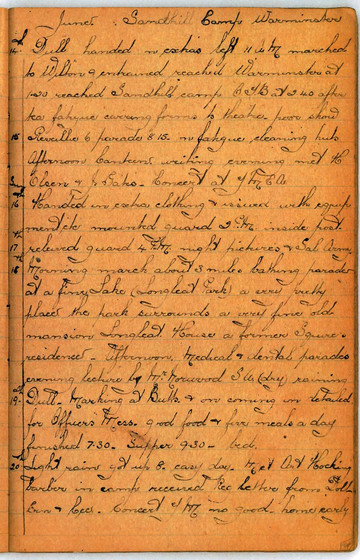 June Sandhill Camp Warminster
14th Drill handed in extras left 11 AM marched
to Wilton & entrained reached Warminster at
1.30 reached Sandhill camp at 2.45 after
tea fatigue carrying forms to theatre poor show
15 Reveille 6 parade 8.15. in fatigue cleaning huts
Afternoon Canteen writing evening met H
Olsen & J. Concert at YMCA
16th Handed in extra clothing & issued with equip
ment etc mounted guard 2 PM inside post.
17th relieved guard night pictures & Sal Army
18th Morning march about 3 miles bathing parade
at a fine Lake (Longleat Park) a very pretty
place the park surrounds a very fine old
mansion Longleat House a former Squire
residence - Afternoon, Medical & dental parades
evening lecture by Mr Norwood (dry) raining
19th Drill - Marking at Butts. & on coming in detailed
for Officers Mess. good food & five meals a day
finished 7.30 - Supper 9.30 - bed.
20th Light rain got up 8. easy day. Met Art Hocking
barber in camp received letter from
Ern & Cec. Concert YM no good - home early